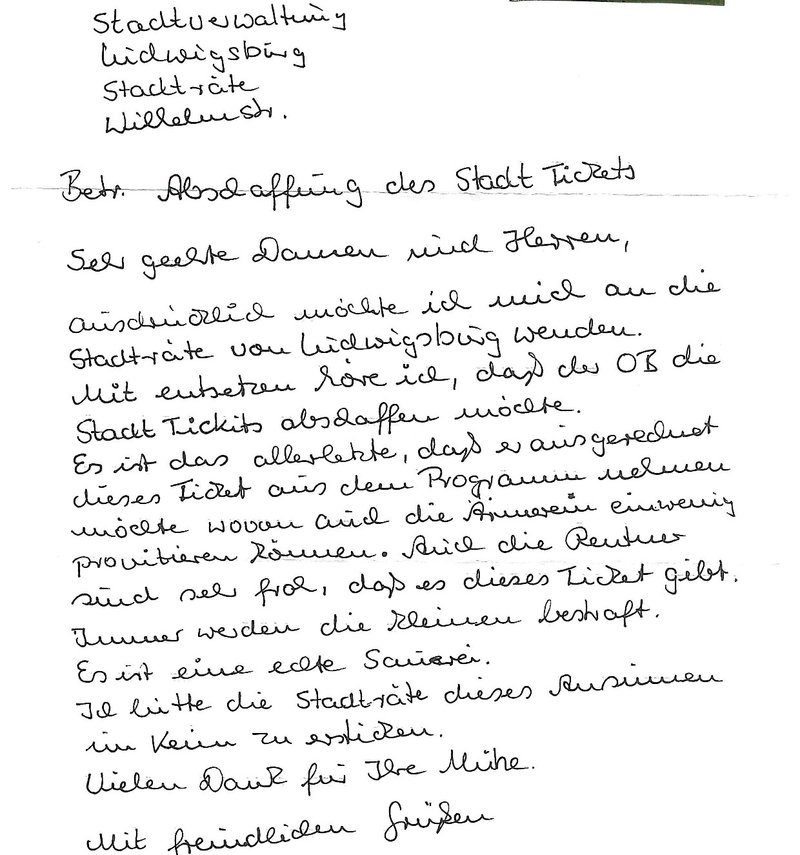 Stadtverwaltung
Ludwigsburg
Stadträte
Wilhelmstr.
Betr. Abschaffung des Stadt Tickets
Sehr geehrte Damen und Herren,
ausdrücklich möchte ich mich an die
Stadträte von Ludwigsburg wenden.
Mit entsetzen höre ich, daß der OB die
Stadt Tickits abschaffen möchte.
Es ist das allerletzte, daß er ausgerechnet
dieses Ticket aus dem Programm nehmen
möchte wovon auch die Ärmeren einwenig
provitieren können. Auch die Rentner
sind sehr froh, daß es dieses Ticket gibt.
Immer werden die kleinen bestraft.
Es ist eine echte Sauerei.
Ich bitte die Stadträte dieses Ansinnen
im Keim zu ersticken.
Vielen Dank für Ihre Mühe.
Mit freundlichen Grüßen